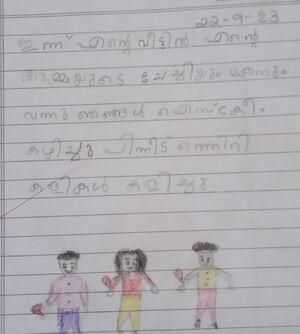 22-9-23
ഇന്ന് എന്റെ വീട്ടിൽ എന്റെ
അമ്മയുടെ ചേച്ചിയും മകനും
വന്നു ഞങ്ങൾ ഐസ്ക്രീം
കഴിച്ചു പിന്നീട് ഒത്തിരി
കളികൾ കളിച്ചു